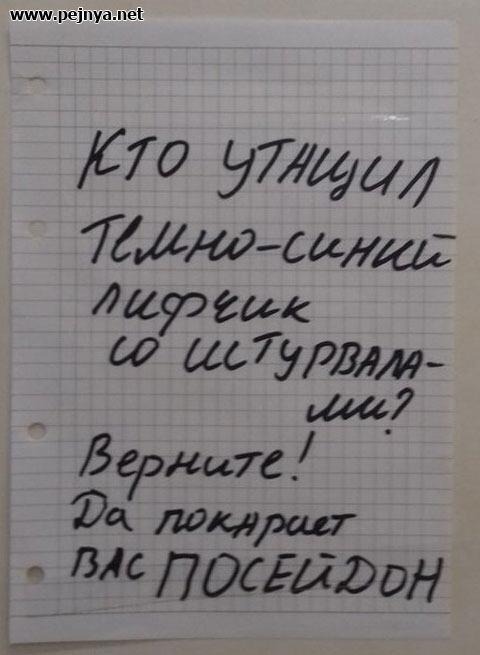 www.pejnya.net
КТО УТАЩИЛ
ТЕМНО-СИНИЙ
ЛИФЧИК
СО ШТУРВАЛА-
МИ?
Верните!
Да покарает
ВАС ПОСЕЙДОН